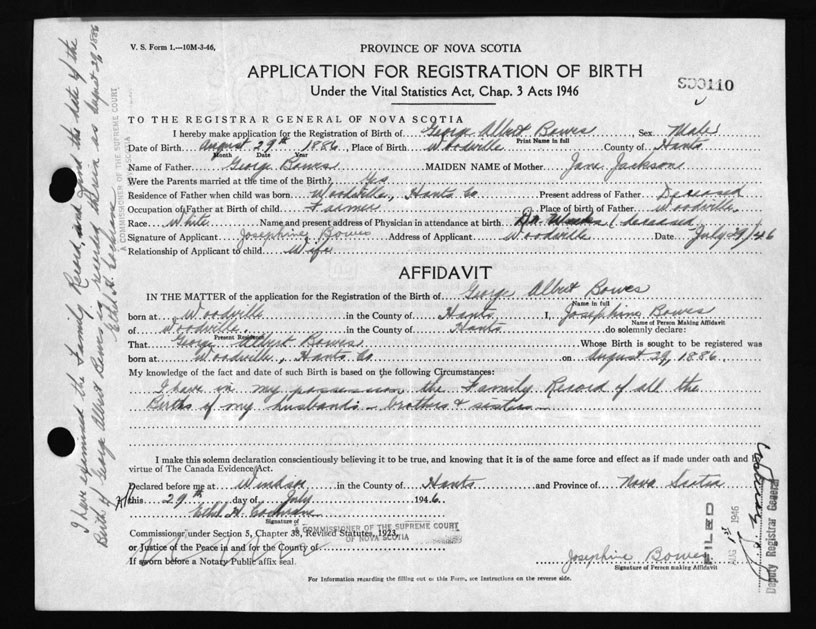 V. S. Form 1.—10M-3-46.
PROVINCE OF NOVA SCOTIA
APPLICATION FOR REGISTRATION OF BIRTH
Under the Vital Statistics Act, Chap. 3 Acts 1946
TO THE REGISTRAR GENERAL OF NOVA SCOTIA
I hereby make application for the Registration of Birth of George Albert Bowes Sex Male
Print Name in full
Date of Birth August 29th 1886 Place of Birth Woodville County of Hants
Month Date Year
Name of Father George Bowes MAIDEN NAME of Mother Jane Jackson
Were the Parents married at the time of the Birth? Yes
Residence of Father when child was born Woodville, Hants Co Present address of Father Deceased
Occupation of Father at Birth of child Farmer Place of birth of Father Woodville
Race White Name and present address of Physician in attendance at birth Dr. (deceased
Signature of Applicant Josephine Bowes Address of Applicant Woodville Date July 29/46
Relationship of Applicant to child Wife
AFFIDAVIT
IN THE MATTER of the application for the Registration of the Birth of George Albert Bowes
Name in full
born at Woodville in the County of Hants I, Josephine Bowes
Name of Person Making Affidavit
of Woodville in the County of Hants do solemnly declare:
Present Residence
That George Albert Bowes Whose Birth is sought to be registered was
born at Woodville, Hants Co on August 29, 1886
My knowledge of the fact and date of such Birth is based on the following Circumstances:
I have in my possession the Family Record of all the
Births of my husband's brothers & sisters
I make this solemn declaration conscientiously believing it to be true, and knowing that it is of the same force and effect as if made under oath and by
virtue of The Canada Evidence Act.
Declared before me at Windsor in the County of Hants and Province of Nova Scotia
this 29th day of July 1946.
Ethel H. Cochrane
Signature of
A COMMISSIONER OF THE SUPREME COURT
OF NOVA SCOTIA
Commissioner under Section 5, Chapter 38, Revised Statutes, 1923,
or Justice of the Peace in and for the County of
If sworn before a Notary Public affix seal.
Josephine Bowes
Signature of Person making Affidavit
For Information regarding the filling out of this Form, see Instructions on the reverse side.
I have examined the Family Record, and find the date of the
Birth of George Albert Bowes, is recorded therein as August 29, 1886
Ethel H. Cochrane
A COMMISSIONER OF THE SUPREME COURT
FILED
AUG 1946
Deputy Registrar General